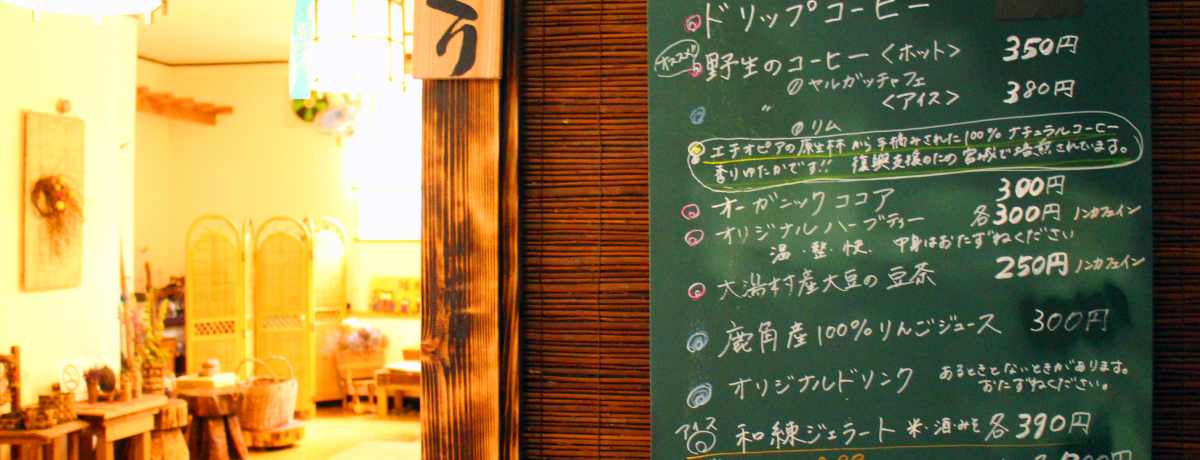 う
ドリップコーヒー
オススメ!!
野生のコーヒー <ホット> 350円
◎ヤルガッチャフェ
〃 <アイス> 380円
◎リム
エチオピアの原生林から手摘みされた100%ナチュラルコーヒー
香りゆたかです!! 復興支援のため宮城で焙煎されています。
オーガニックココア 300円
オリジナルハーブティー 各300円 ノンカフェイン
温・整・快、中身はおたずねください
大潟村産大豆の豆茶 250円 ノンカフェイン
鹿角産100%りんごジュース 300円
オリジナルドリンク あるときとないときがあります。
おたずねください。
アイス 和練ジェラート 米・酒・みそ 各390円